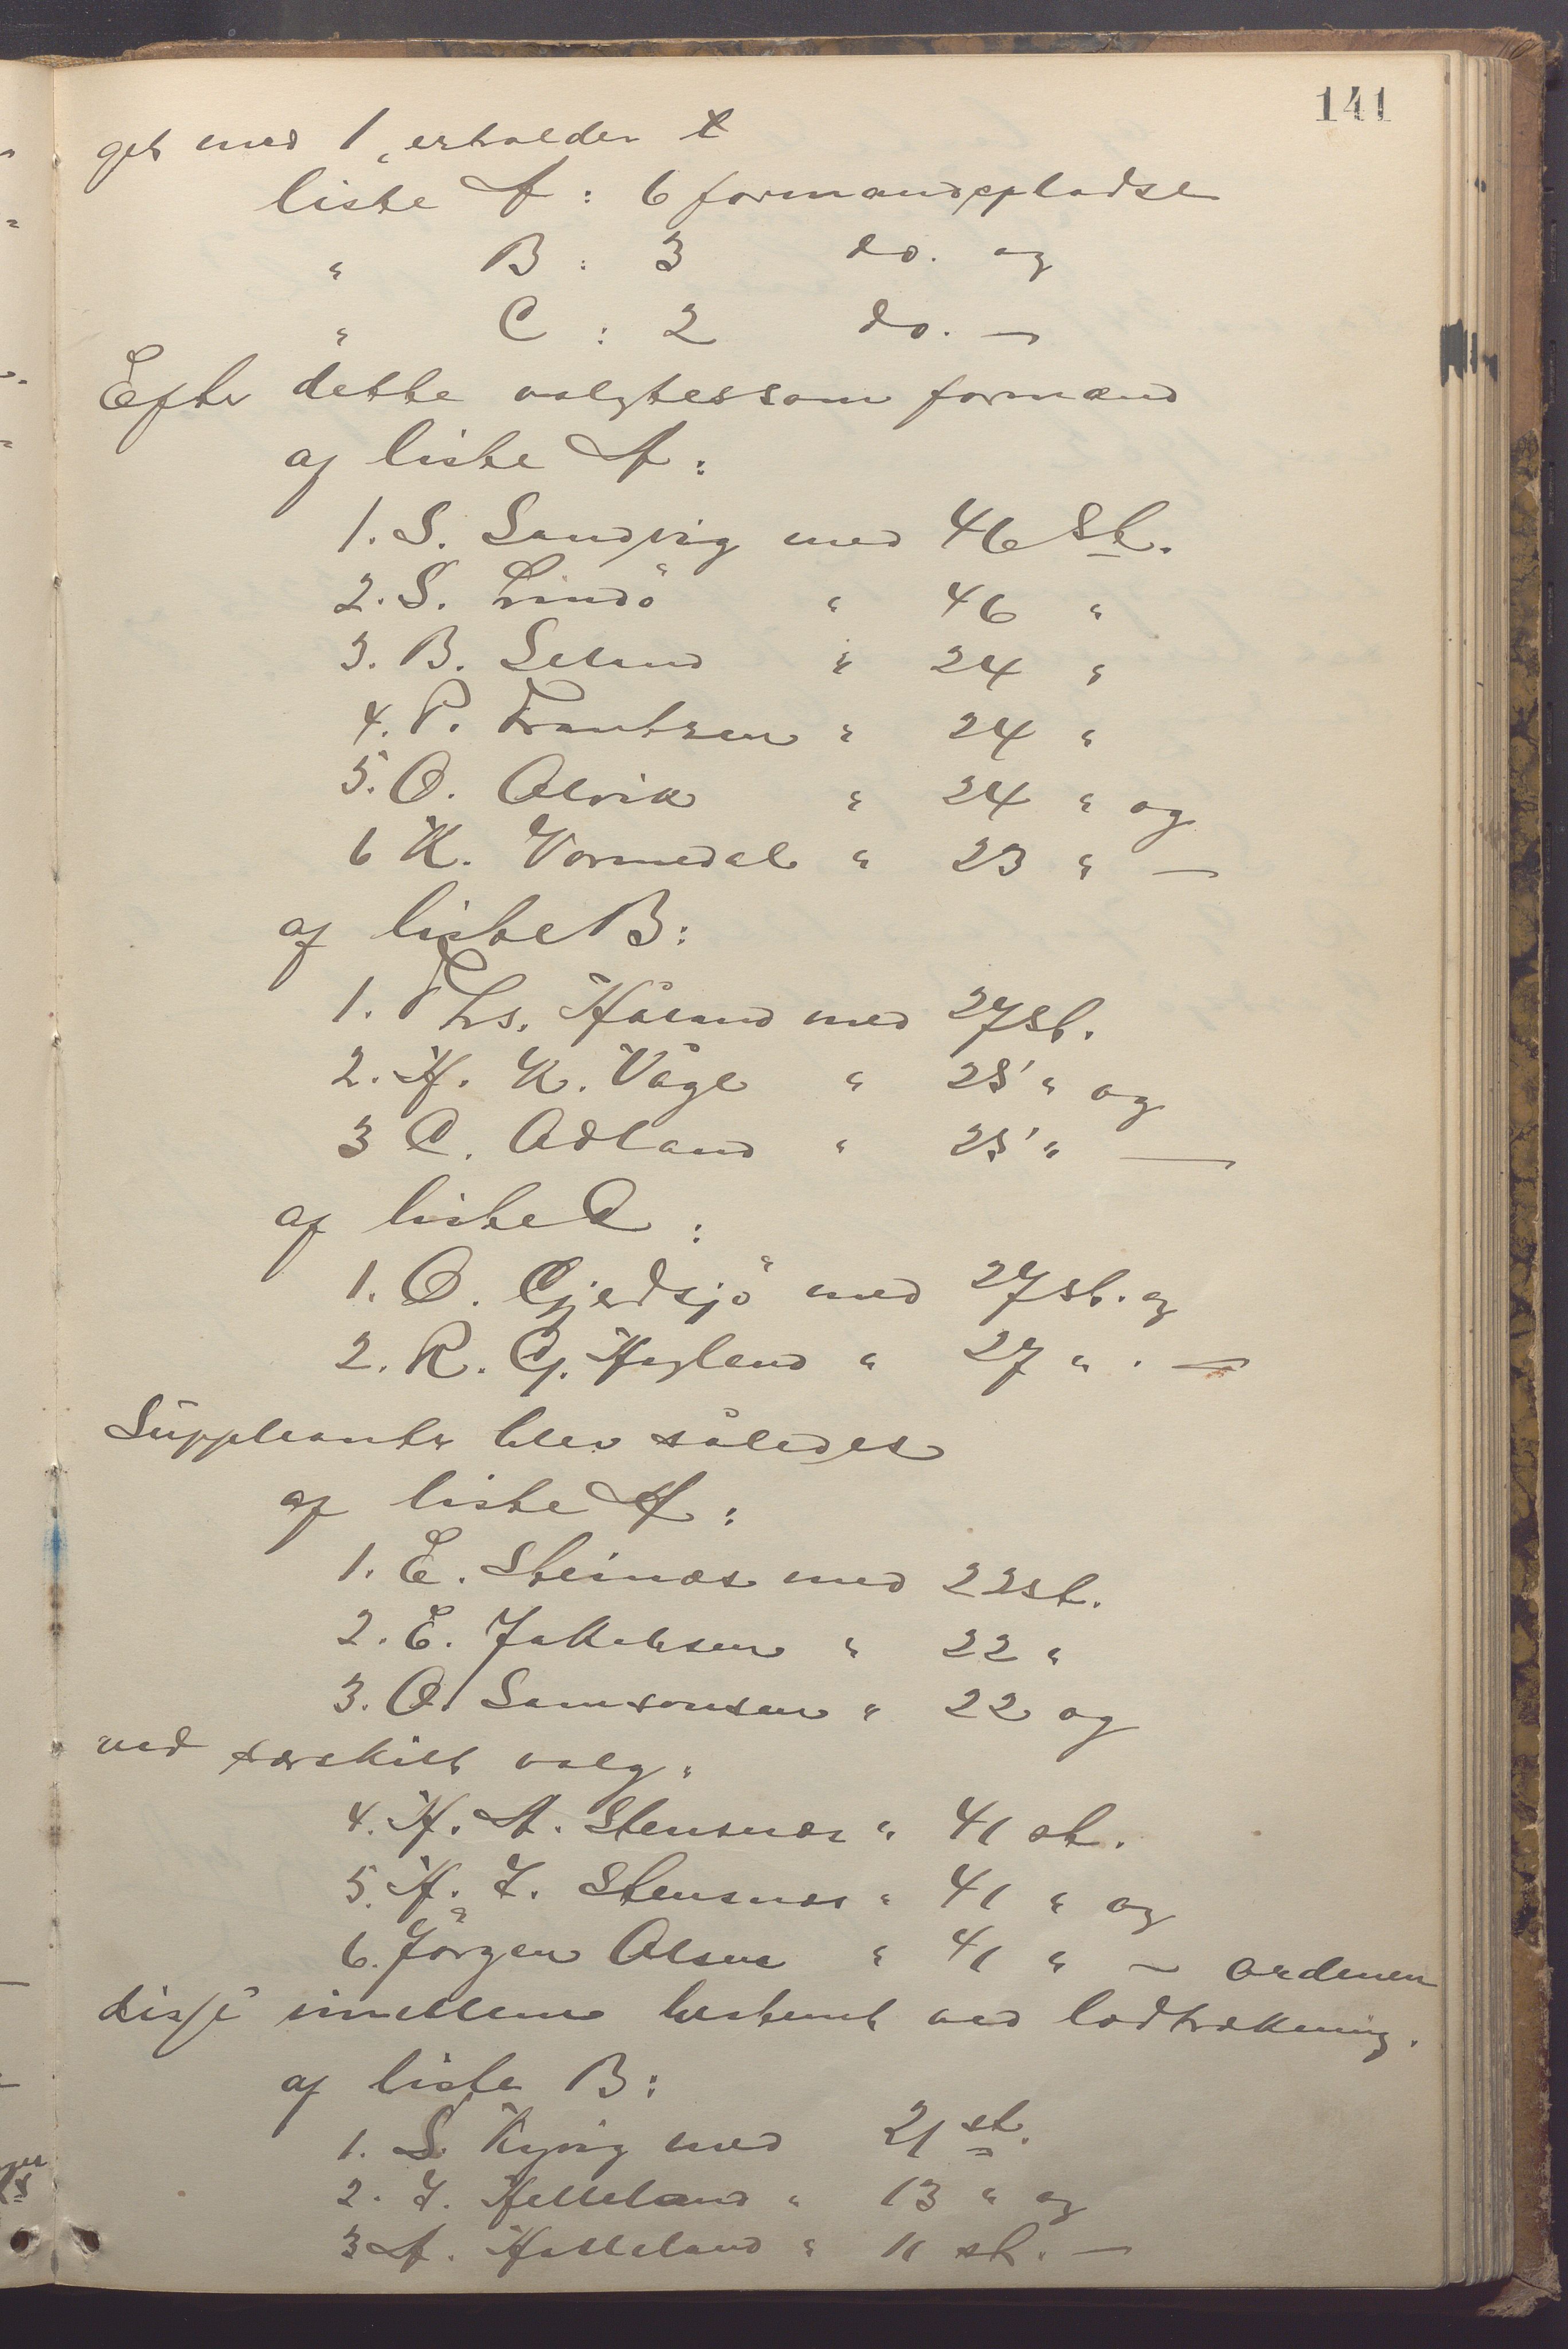 141
get med 1, erholder
liste A : 6 formandspladse
" B : 3 do. og
" C : 2 do. —
Efter dette valgtes som formænd
af liste A :
1. S. Sandvig med 46 St.
2. S. Lindö " 46 "
3. B. Seland " 24 "
4. P. Frantzen " 24 "
5. O. Alvik " 24 " og
6 K. Vormedal " 23 " —
af liste B :
1. Ths. Håland med 27 st.
2. H. K. Våge " 25 " og
3 C. Adland " 25 " —
af liste C :
1. O. Gjerdsjö med 27 st. og
2. R. G. Hagland " 27 " . —
Suppleanter blev således
af liste A :
1. E. Steinæs med 22 st.
2. E. Jakobsen " 22 "
3. O. Samsonsen " 22 og
ved særskilt valg :
4. H. A. Stensnæs " 41 st.
5. H. J. Stensnæs " 41 " og
6. Jörgen Olsen " 41 " — ordenen
disse imellem bestemt ved lodtrækning.
af liste B :
1. S. Kyvig med 21 st.
2. J. Helleland " 13 " og
3 A. Halleland " 11 st. —